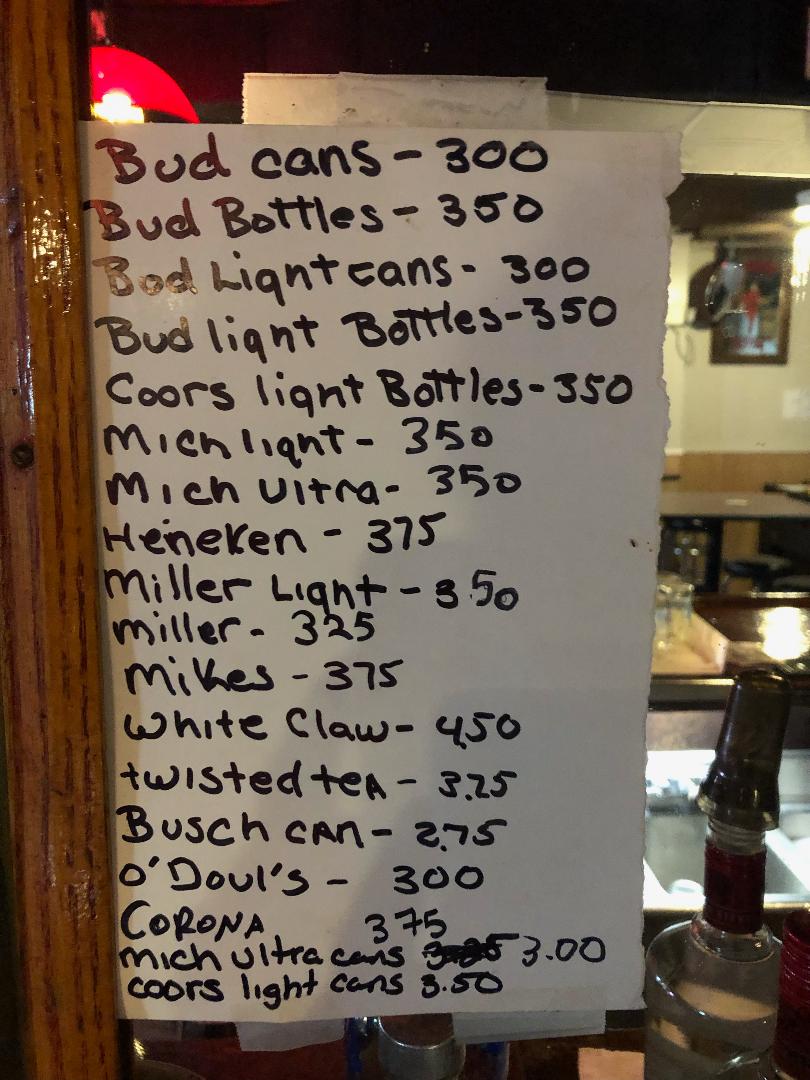 Bud cans - 300
Bud Bottles - 350
Bud Light cans - 300
Bud light Bottles - 350
Coors light Bottles - 350
Mich light - 350
Mich Ultra - 350
Heineken - 375
Miller Light - 350
miller - 325
Mikes - 375
White Claw - 4.50
twisted teA - 3.75
Busch cAn - 2.75
O'Doul's - 300
CORONA 375
mich ultra cans 3.00
coors light cans 3.50